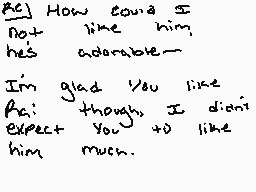 Re] How could I
not like him,
he's adorable~
I'm glad you like
Rai though, I didn't
expect you to like
him much.